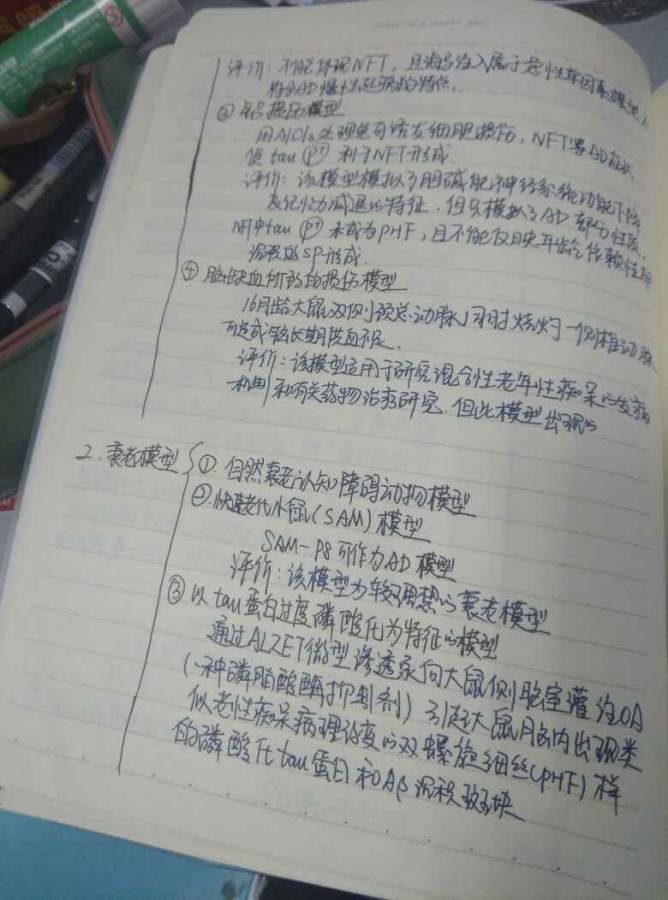 评价：不能体现NFT，且海马注入属于急性病因素模拟
将与AD慢性起病的特点．
③ 铝损伤模型
用AlCl₃处理也可诱发细胞损伤，NFT等AD症状
使tau Ⓟ↑ 利于NFT形成．
评价：该模型模拟了胆碱能神经系统功能下降
及记忆力减退的特征，但只模拟了AD部分性质，
NFT中tau Ⓟ↑ 未成为PHF，且不能反映年龄依赖性
沉积的SP形成．
④ 脑缺血所致的损伤模型
16月龄大鼠双侧颈总动脉，同时烧灼一侧椎动脉
可造成脑长期供血不足．
评价：该模型应用于研究混合性老年性痴呆的发病
机制和有关药物治疗研究．但此模型出现的
2．衰老模型 ①．自然衰老认知障碍动物模型
②．快速老化小鼠（SAM）模型
SAM-P8可作为AD模型
评价：该模型为较理想的衰老模型
③ 以tau蛋白过度磷酸化为特征的模型
通过ALZET微型渗透泵向大鼠侧脑室灌注OA
（一种磷脂酸酶抑制剂）引起大鼠月内出现类
似老性痴呆病理改变的双螺旋细丝（PHF）样
的磷酸化tau蛋白和Aβ沉积斑块